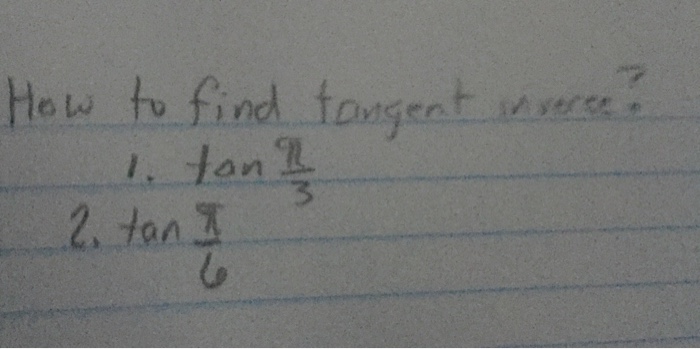 How to find tangent inverse?
1. tan π/3
2. tan π/6